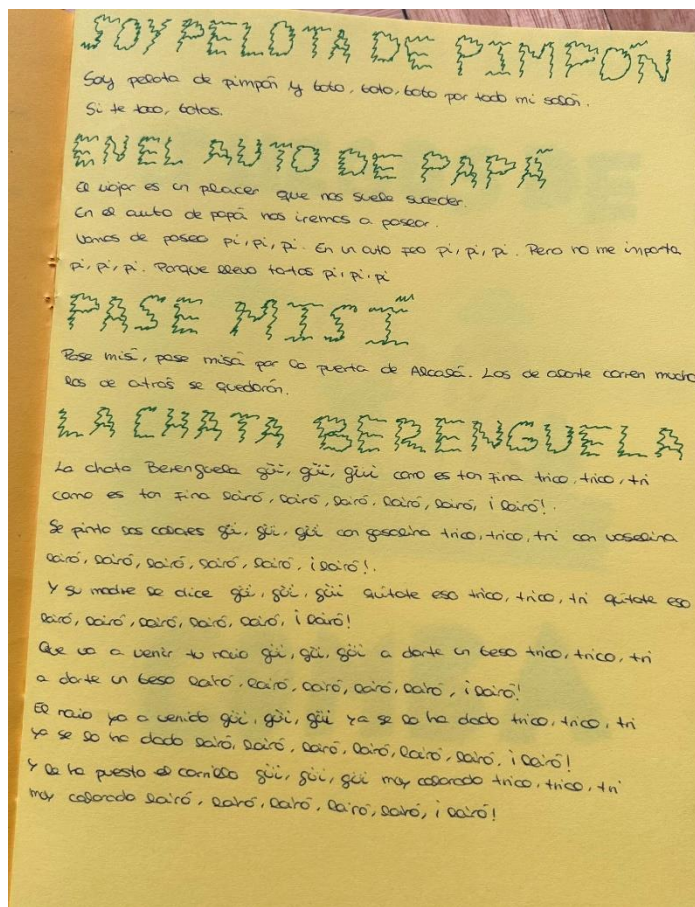 SOY PELOTA DE PIMPÓN
Soy pelota de pimpón y boto, boto, boto por todo mi salón.
Si te toco, botas.
EN EL AUTO DE PAPÁ
El viajar es un placer que nos suele suceder.
En el auto de papá nos iremos a pasear.
Vamos de paseo pi, pi, pi. En un auto feo pi, pi, pi. Pero no me importa
pi, pi, pi. Porque llevo tortas pi, pi, pi
PASE MISÍ
Pase misí, pase misá por la puerta de Alcalá. Los de alante corren mucho
los de atrás se quedarán.
LA CHATA BERENGUELA
La chata Berenguela güi, güi, güi como es tan fina trico, trico, tri
como es tan fina lairó, lairó, lairó, lairó, lairó, ¡lairó!.
Se pinta los colores güi, güi, güi con gasolina trico, trico, tri con vaselina
lairó, lairó, lairó, lairó, lairó, ¡lairó!.
Y su madre le dice güi, güi, güi quítate eso trico, trico, tri quítate eso
lairó, lairó, lairó, lairó, lairó, ¡lairó!
Que va a venir tu novio güi, güi, güi a darte un beso trico, trico, tri
a darte un beso lairó, lairó, lairó, lairó, lairó, ¡lairó!
El novio ya a venido güi, güi, güi ya se lo ha dado trico, trico, tri
ya se lo ha dado lairó, lairó, lairó, lairó, lairó, lairó, ¡lairó!
Y le ha puesto el carrillo güi, güi, güi muy colorado trico, trico, tri
muy colorado lairó, lairó, lairó, lairó, lairó, ¡lairó!